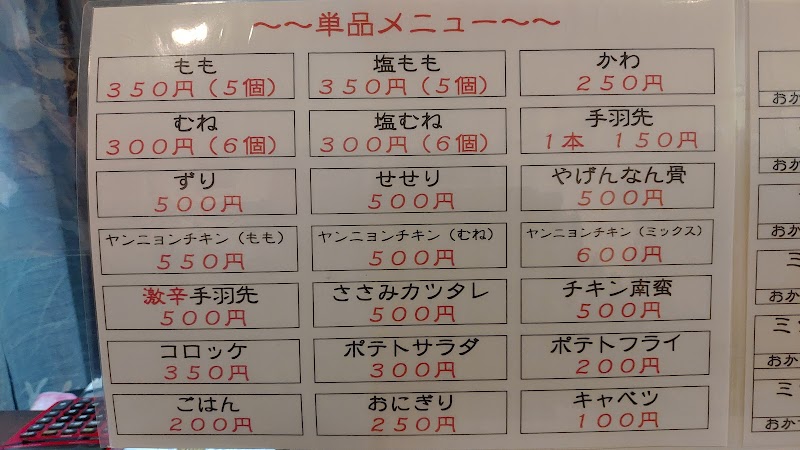 ～～単品メニュー～～
もも
３５０円（５個）
塩もも
３５０円（５個）
かわ
２５０円
むね
３００円（６個）
塩むね
３００円（６個）
手羽先
１本　１５０円
ずり
５００円
せせり
５００円
やげんなん骨
５００円
ヤンニョンチキン（もも）
５５０円
ヤンニョンチキン（むね）
５００円
ヤンニョンチキン（ミックス）
６００円
激辛手羽先
５００円
ささみカツタレ
５００円
チキン南蛮
５００円
コロッケ
３５０円
ポテトサラダ
３００円
ポテトフライ
２００円
ごはん
２００円
おにぎり
２５０円
キャベツ
１００円
おか
おか
おか
ミ
おか
ミ
おか
ミ
おか